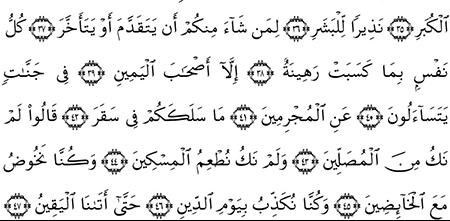 ٱلْكُبَرِ ﴿٣٥﴾ نَذِيرًا لِّلْبَشَرِ ﴿٣٦﴾ لِمَن شَآءَ مِنكُمْ أَن يَتَقَدَّمَ أَوْ يَتَأَخَّرَ ﴿٣٧﴾ كُلُّ
نَفْسٍۭ بِمَا كَسَبَتْ رَهِينَةٌ ﴿٣٨﴾ إِلَّآ أَصْحَٰبَ ٱلْيَمِينِ ﴿٣٩﴾ فِى جَنَّٰتٍ
يَتَسَآءَلُونَ ﴿٤٠﴾ عَنِ ٱلْمُجْرِمِينَ ﴿٤١﴾ مَا سَلَكَكُمْ فِى سَقَرَ ﴿٤٢﴾ قَالُوا۟ لَمْ
نَكُ مِنَ ٱلْمُصَلِّينَ ﴿٤٣﴾ وَلَمْ نَكُ نُطْعِمُ ٱلْمِسْكِينَ ﴿٤٤﴾ وَكُنَّا نَخُوضُ
مَعَ ٱلْخَآئِضِينَ ﴿٤٥﴾ وَكُنَّا نُكَذِّبُ بِيَوْمِ ٱلدِّينِ ﴿٤٦﴾ حَتَّىٰٓ أَتَىٰنَا ٱلْيَقِينُ ﴿٤٧﴾